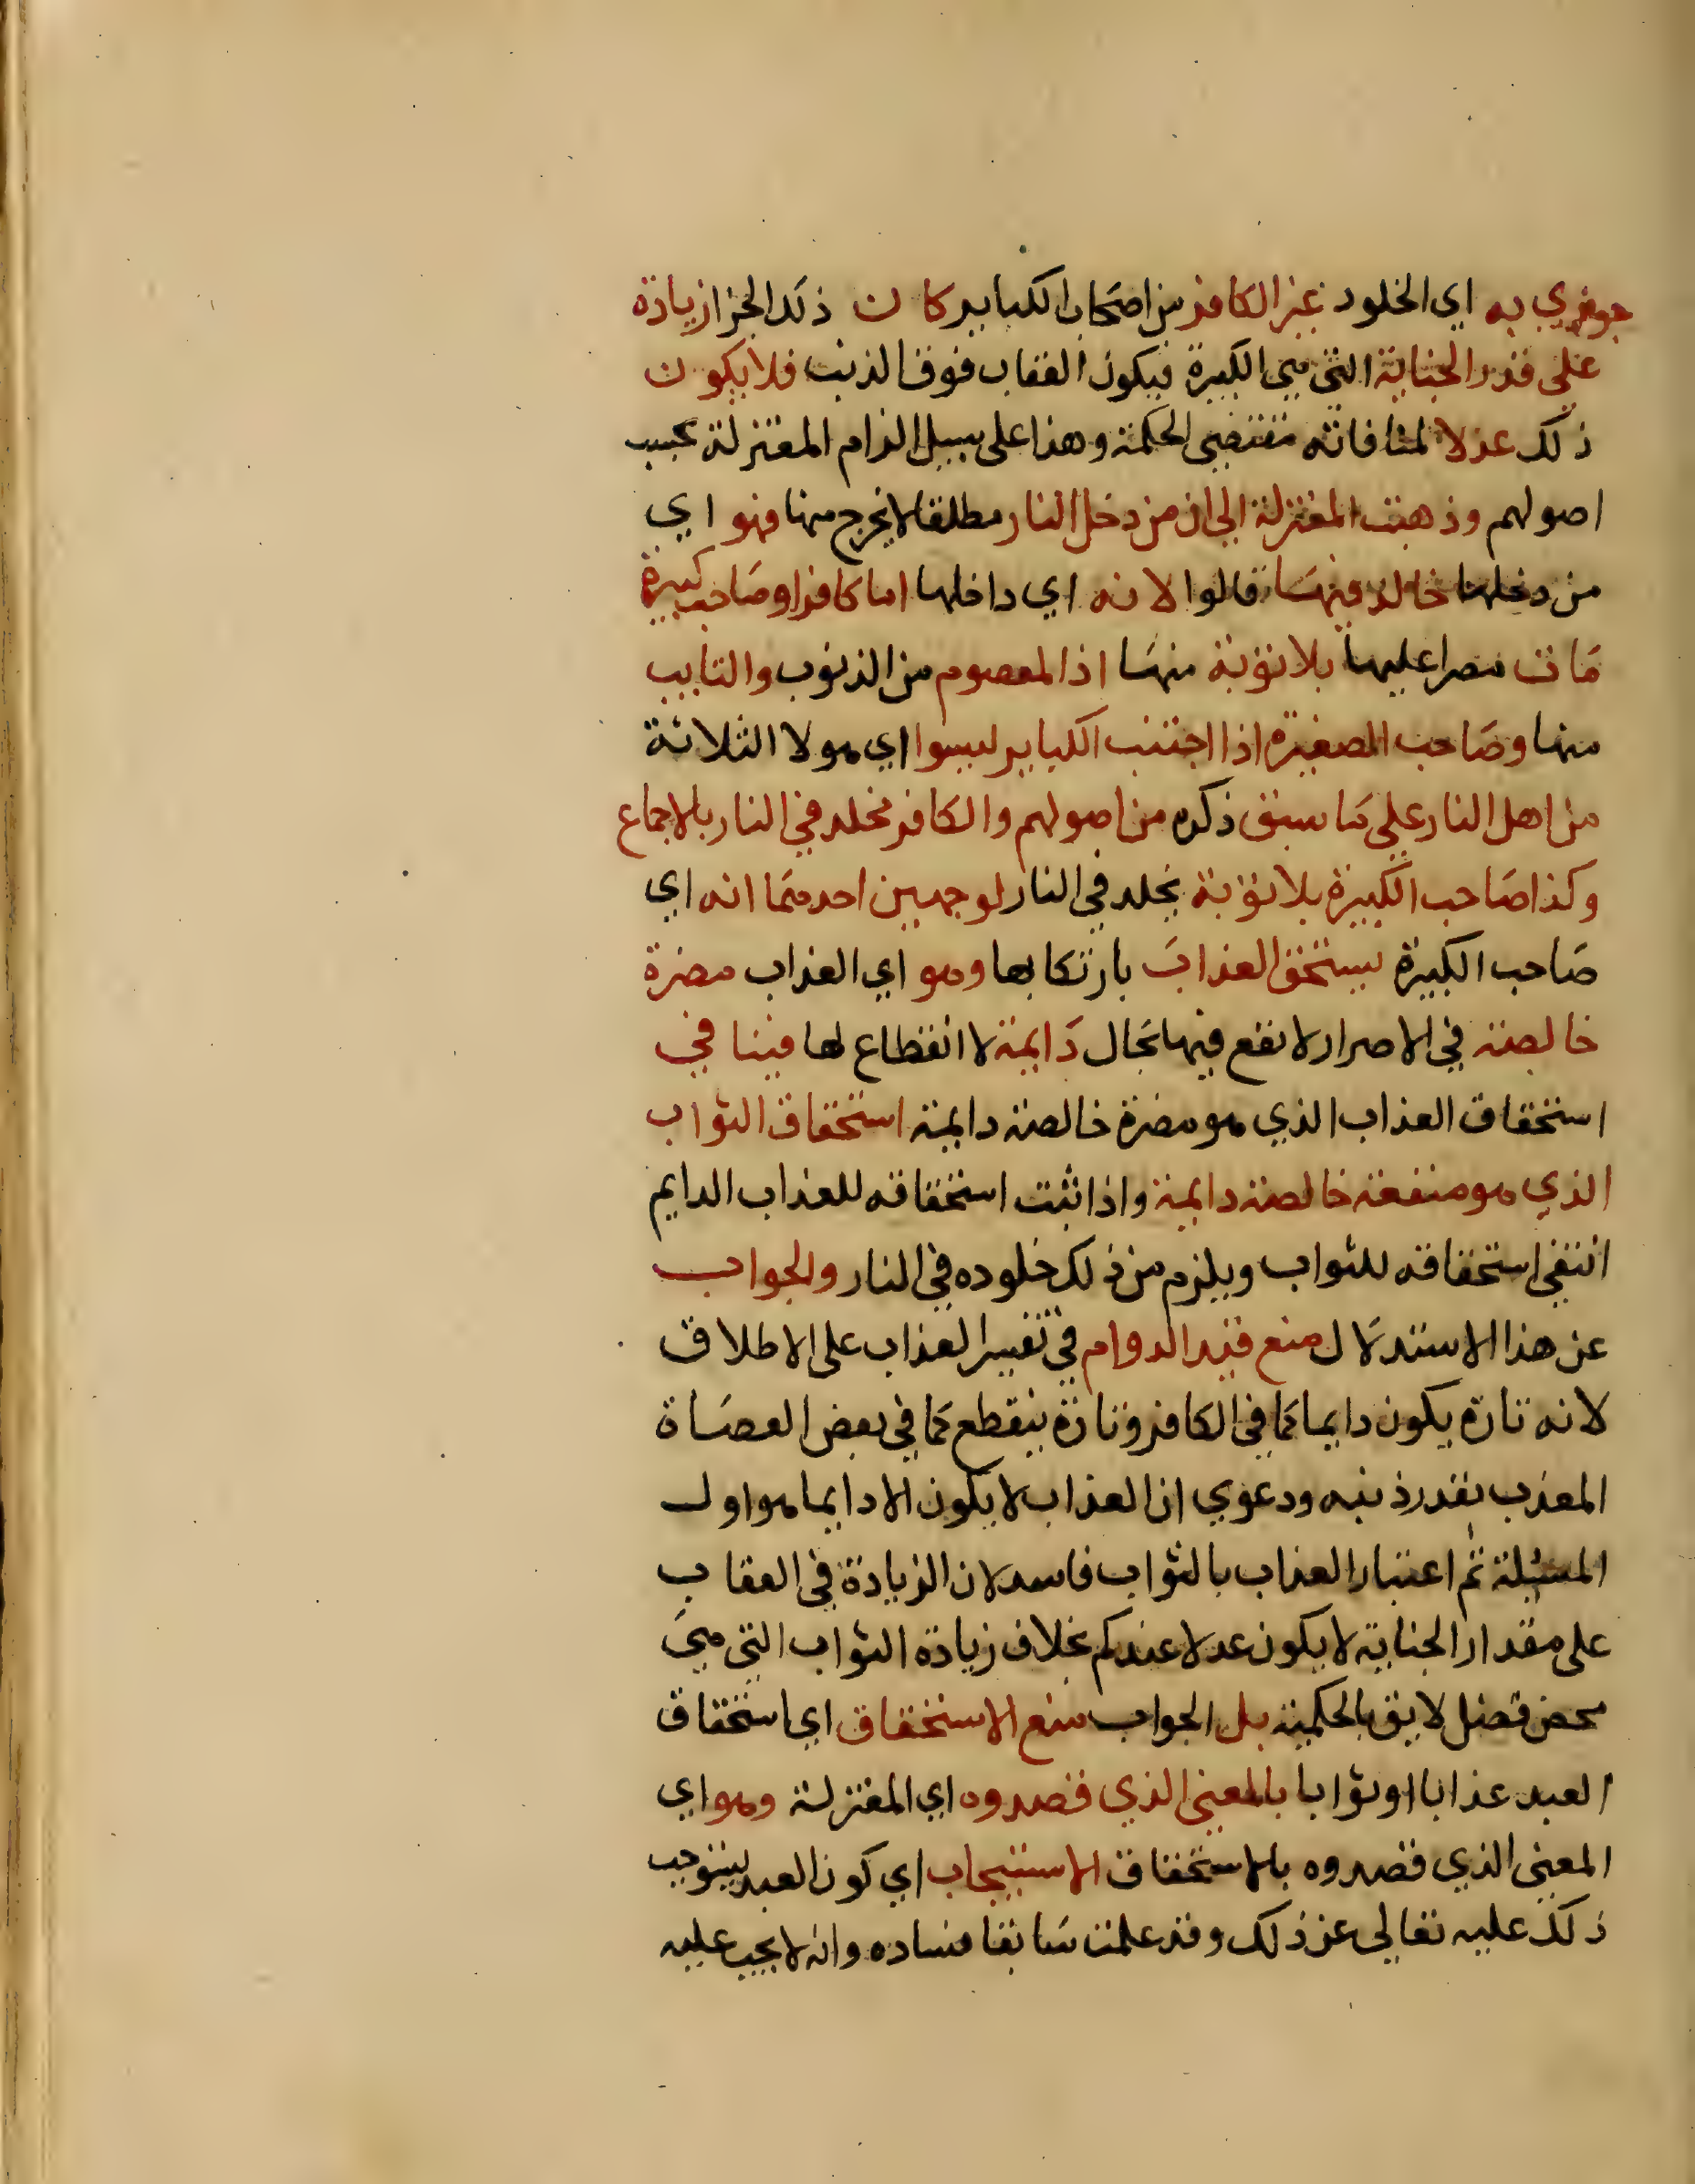 جوزي به اي الخلود غير الكافر من اصحاب الكباير كان ذلك الجزا زيادة
على قدر الجناية التي هي الكبيرة فيكون العقاب فوق الذنب فلا يكون
ذلك عدلا لمنافاته مقتضى الحكمة وهذا على سبيل الزام المعتزلة بحسب
اصولهم وذهبت المعتزلة الى ان من دخل النار مطلقا لا يخرج منها فهو اي
من دخلها خالد فيها قالوا لانه اي داخلها اما كافر او صاحب كبيرة
مات مصرا عليها بلا توبة منها اذ المعصوم من الذنوب والتايب
منها وصاحب الصغيرة اذا اجتنب الكباير ليسوا اي هولا الثلاثة
من اهل النار على ما سبق ذكره من اصولهم والكافر مخلد في النار بالاجماع
وكذا صاحب الكبيرة بلا توبة يخلد في النار لوجهين احدهما انه اي
صاحب الكبيرة يستحق العذاب بارتكابها وهو اي العذاب مضرة
خالصة في الاصرار لا نفع فيها بحال دايمة لا انقطاع لها فينافي
استحقاق العذاب الذي هو مضرة خالصة دايمة استحقاق الثواب
الذي هو منفعة خالصة دايمة واذا ثبت استحقاقه للعذاب الدايم
انتفى استحقاقه للثواب ويلزم من ذلك خلوده في النار والجواب
عن هذا الاستدلال منع قيد الدوام في تفسير العذاب على الاطلاق
لانه تارة يكون دايما كما في الكافر وتارة ينقطع كما في بعض العصاة
المعذب بقدر ذنبه ودعوي ان العذاب لا يكون الا دايما هو اول
المسئلة ثم اعتبار العذاب بالثواب فاسد لان الزيادة في العقاب
على مقدار الجناية لا يكون عدلا عندكم بخلاف زيادة الثواب التي هي
محض فضل لايق بالحكمة بل الجواب منع الاستحقاق اي استحقاق
العبد عذابا او ثوابا بالمعنى الذي قصدوه اي المعتزلة وهو اي
المعنى الذي قصدوه بالاستحقاق الاستيجاب اي كون العبد يستوجب
ذلك عليه تعالى عن ذلك وقد علمت سابقا فساده وانه لا يجب عليه